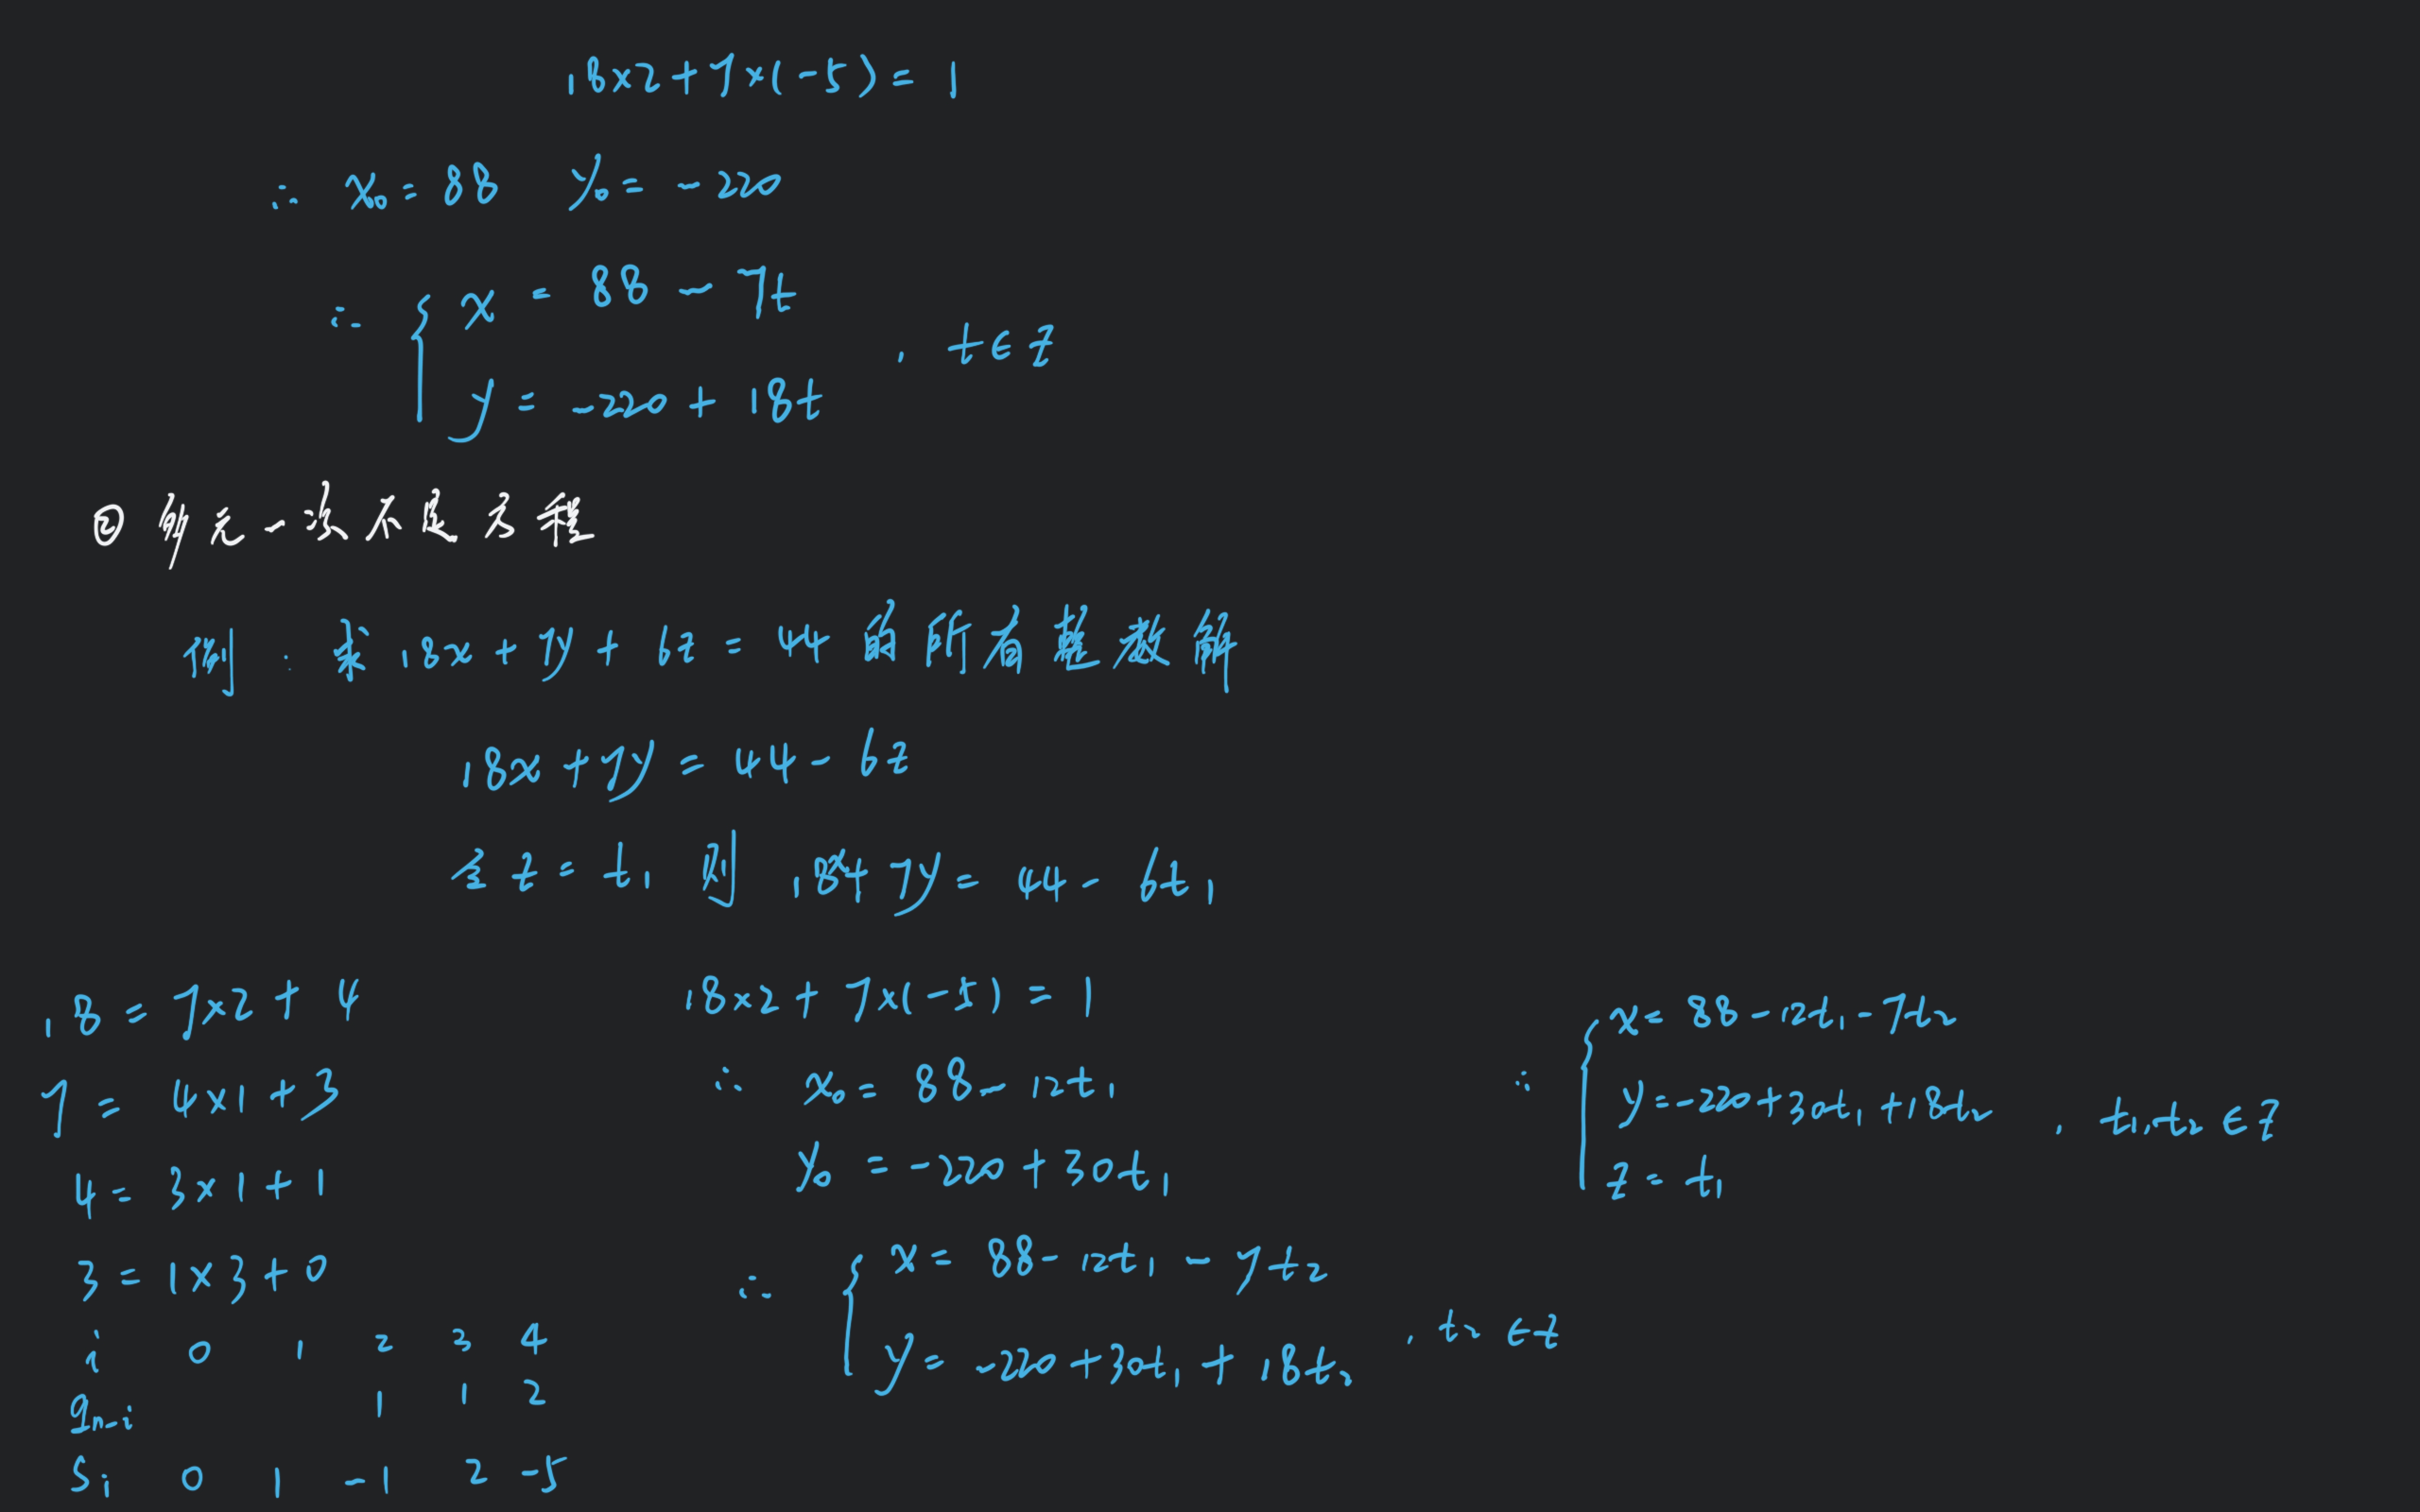 18×2+7×(-5)=1
∴ x₀=88 y₀=-220
∴ { x=88-7t
y=-220+18t , t∈Z
② 多元一次不定方程
例: 求18x+7y+6z=44的所有整数解
18x+7y=44-6z
令z=t₁ 则 18x+7y=44-6t₁
18=7×2+4
7=4×1+3
4=3×1+1
3=1×3+0
i 0 1 2 3 4
qₙ₋ᵢ 1 1 2
Sᵢ 0 1 -1 2 -5
18×2+7×(-5)=1
∴ x₀=88-12t₁
y₀=-220+30t₁
∴ { x=88-12t₁-7t₂
y=-220+30t₁+18t₂ , t₂∈Z
∴ { x=88-12t₁-7t₂
y=-220+30t₁+18t₂ , t₁,t₂∈Z
z=t₁